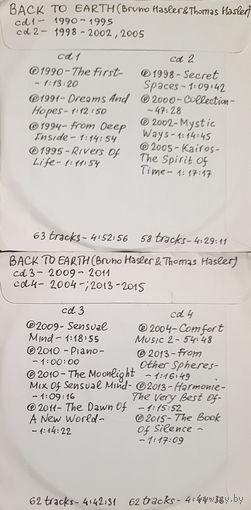 BACK TO EARTH (Bruno Hasler & Thomas Hasler)
cd1 - 1990-1995
cd2 - 1998-2002, 2005
cd1
℗1990-The First-
-1:13:20
℗1991-Dreams And
Hopes-1:12:50
℗1994-From Deep
Inside-1:14:54
℗1995-Rivers Of
Life-1:11:54
cd 2
℗1998-Secret
Spaces-1:09:42
℗2000-Collection-
-47:28
℗2002-Mystic
Ways-1:14:45
℗2005-Kairos-
The Spirit Of
Time-1:17:17
63 tracks-4:52:56 58 tracks-4:29:11
BACK TO EARTH (Bruno Hasler & Thomas Hasler)
cd3-2009-2011
cd4-2004-; 2013-2015
cd 3
℗2009-Sensual
Mind-1:18:55
℗2010-Piano-
-1:00:00
℗2010-The Moonlight
Mix Of Sensual Mind-
-1:09:16
℗2011-The Dawn Of
A New World-
-1:14:22
cd 4
℗2004-Comfort
Music 2-54:48
℗2013-From
Other Spheres-
-1:16:49
℗2013-Harmonie-
The Very Best Of-
-1:15:52
℗2015-The Book
Of Silence-
-1:17:09
62 tracks-4:42:31 62 tracks-